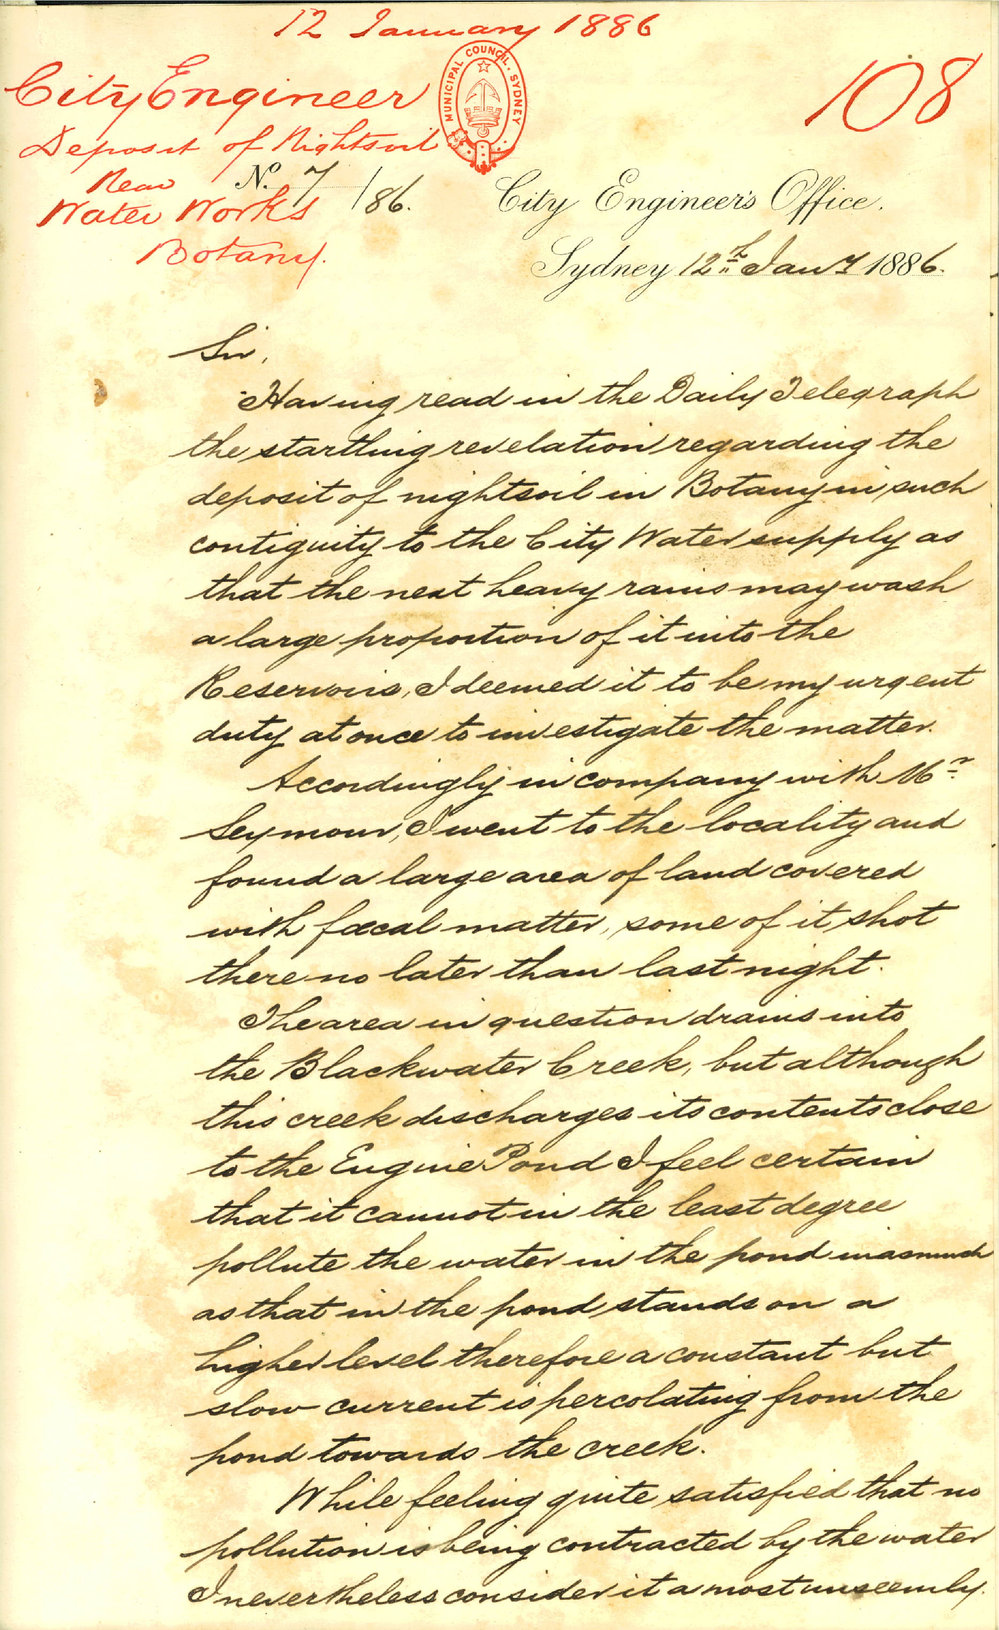 12 January 1886
City Engineer
MUNICIPAL COUNCIL. SYDNEY
108
Deposit of Nightsoil
Near
No. 7 /86.
Water Works
Botany.
City Engineer's Office.
Sydney 12th Jany 1886.
Sir,
Having read in the Daily Telegraph
the startling revelation regarding the
deposit of nightsoil in Botany in such
contiguity to the City Water supply as
that the next heavy rains may wash
a large proportion of it into the
Reservoirs, I deemed it to be my urgent
duty at once to investigate the matter.
Accordingly in company with Mr.
Seymour, I went to the locality and
found a large area of land covered
with fœcal matter, some of it shot
there no later than last night.
The area in question drains into
the Blackwater Creek, but although
this creek discharges its contents close
to the Engine Pond I feel certain
that it cannot in the least degree
pollute the water in the pond inasmuch
as that in the pond stands on a
higher level therefore a constant but
slow current is percolating from the
pond towards the creek.
While feeling quite satisfied that no
pollution is being contracted by the water
I nevertheless consider it a most unseemly